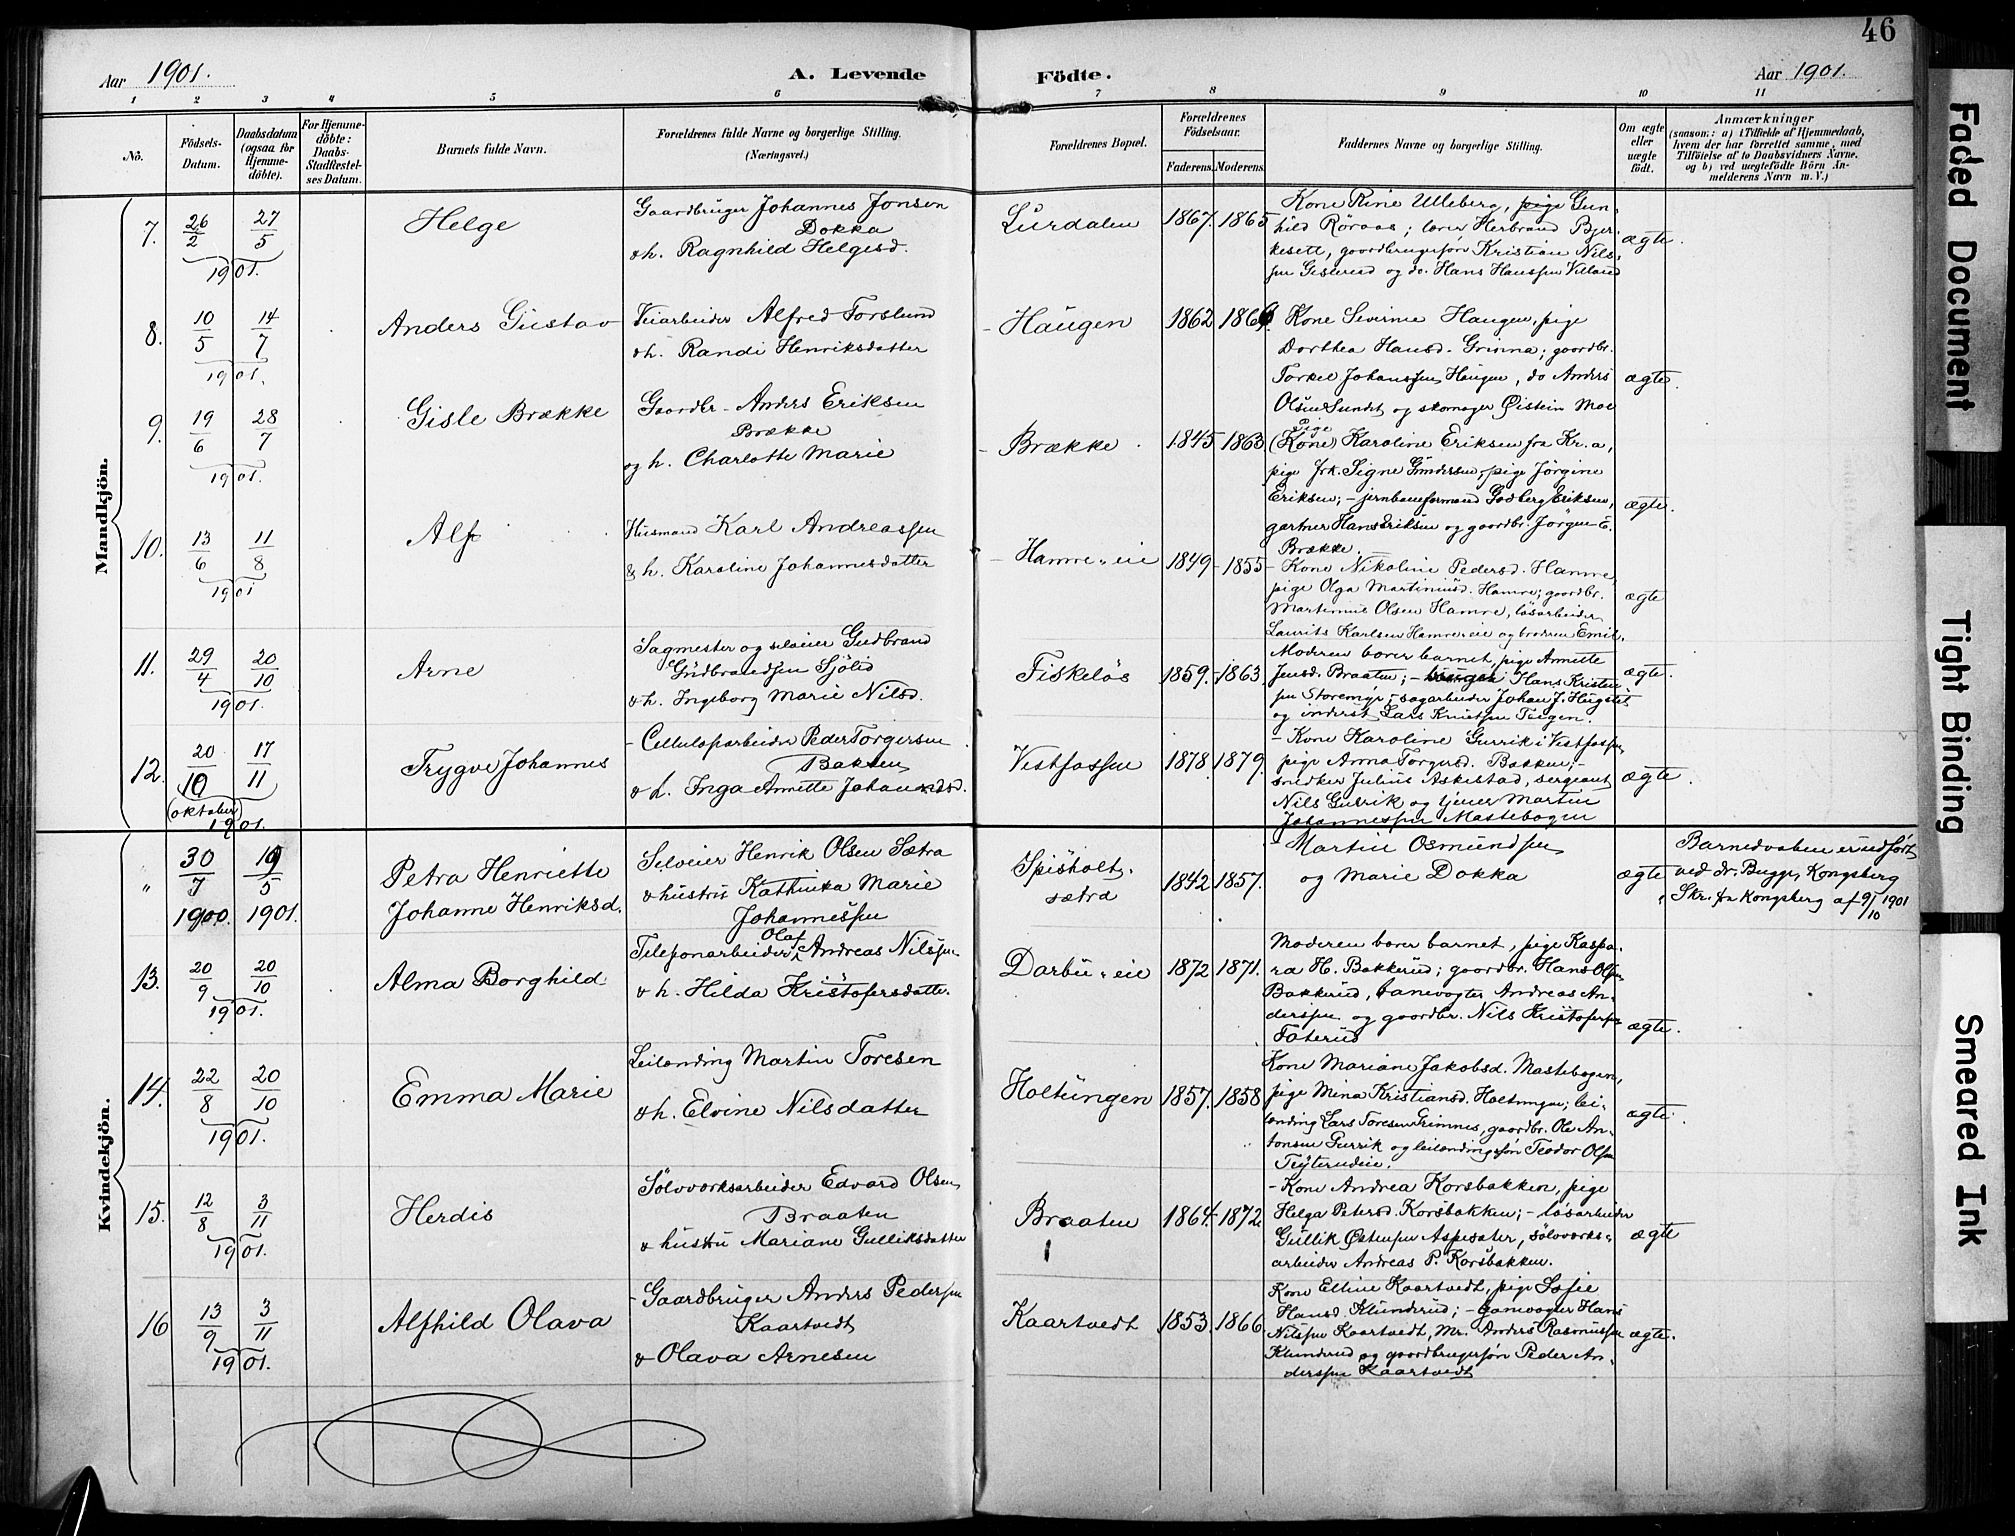 46
Aar 1901.
A. Levende
Födte.
Aar 1901.
1 2 3 4 5 6 7 8 9 10 11
No.
Födsels-
Datum.
Daabsdatum
(ogsaa for
Hjemme-
döbte).
For Hjemme-
döbte:
Daabs-
Stadfæstel-
ses Datum.
Barnets fulde Navn.
Forældrenes fulde Navne og borgerlige Stilling.
(Næringsvei.)
Forældrenes Bopæl.
Forældrenes
Födselsaar.
Faderens. Moderens.
Faddernes Navne og borgerlige Stilling.
Om ægte
eller
uægte
födt.
Anmærkninger
(saasom: a) i Tilfælde af Hjemmedaab,
hvem der har forrettet samme, med
Tilföielse af to Daabsvidners Navne,
og b) ved uægtefödte Börn An-
melderens Navn m. V.)
Mandkjön.
7.
26/2 27/5
1901.
Helge
Gaardbruger Johannes Jonsen
Dokka
& h. Ragnhild Helgesd.
Lurdalen
1867. 1865
Kone Rine Ulleberg, pige Gun-
hild Röraas; lærer Herbrand Bjer-
kesett, gaardbrugersön Kristian Nils-
sen Gislerud og do. Hans Hanssen Villand
ægte.
8.
10/5 14/7
1901.
Anders Gustav
Veiarbeider Alfred Torslund
& h. Randi Henriksdatter
Haugen
1862
Kone Severine Haugen, pige
Dorthea Hansd. Grinna; gaardbr.
Torkel Johanssen Haugen, do Anders
Olsen Sundet og skomager Øistein Moe
ægte.
9.
19/6 28/7
1901.
Gisle Brække
Gaardbr. Anders Eriksen
Brække
og h. Charlotte Marie
Brække
1845 1863.
Pige
(Kone) Karoline Eriksen fra Kr.a,
pige frk. Signe Gundersen, pige Jörgine
Eriksen; - jernbaneformand Godberg Eriksen,
gartner Hans Eriksen og gaardbr. Jörgen E.
Brække.
ægte.
10.
13/6 11/8
1901
Alf
Husmand Karl Andreassen
& h. Karoline Johannesdatter
Hamre-eie
1849 - 1855
Kone Nikoline Pedersd. Hamre,
pige Olga Martiniusd. Hamre; gaardbr.
Martinius Olsen Hamre, lösarbeider
Laurits Karlsen Hamre eie og broderen Emil.
ægte
11.
29/4 20/10
1901.
Arne
Sagmester og selveier Gudbrand
Gudbrandsen Sjölid
& h. Ingeborg Marie Nilsd.
Fiskelös
1859. - 1863.
Moderen bærer barnet, pige Annette
Jensd. Braaten; - Hans Kristen
sen Storemyr, sagarbeider Johan J.
og inderst Lars Knutsen Teigen.
ægte.
12.
20/10 17/11
(oktober)
1901.
Trygve Johannes
- Cellulosarbeider Peder Torgersen
Bakken
& h. Inga Annette Johannesd.
Vestfossen
1878. 1879.
- Kone Karoline Gurrik i Vestfossen,
pige Anna Torgersd. Bakken; -
snedker Julius Askestad, sergeant
Nils Gurrik og tjener Martin
Johannessen Mastebogen
ægte.
Kvindekjön.
"
30/7 19/5
1900. 1901.
Petra Henriette
Johanne Henriksd.
Selveier Henrik Olsen Sætra
& hustru Kathinka Marie
Johannessen
Spisholt-
sætra
1842 1857.
Martin Osmundsen
og Marie Dokka
ægte
Barnedaaben er udfört
ved dr. Bugge, Kongsberg
Skr. fra Kongsberg af 9/10 1901
13.
20/9 20/10
1901.
Alma Borghild
Telefonarbeider Olaf Andreas Nilssen
& h. Hilda Kristofersdatter
Darbu-eie
1872 1871.
Moderen bærer barnet, pige Kaspa-
ra H. Bakkerud; gaardbr. Hans Olsen
Bakkerud, banevogter Andreas An-
derssen og gaardbr. Nils Kristofersen
Foterud
ægte.
14.
22/8 20/10
1901.
Emma Marie
Leilænding Martin Toresen
& h. Elvine Nilsdatter
Holtungen
1857. 1858
Kone Mariane Jakobsd. Mastebogen,
pige Mina Kristiansd. Holtungen; lei-
lænding Lars Toresen Grimnes, gaardbr. Ole An-
tonsen Gurrik og leilændingssön Teodor Olsen
Teigterudeie.
ægte.
15.
12/8 3/11
1901.
Herdis
Sölvværksarbeider Edvard Olsen
Braaten
& hustru Mariane Gulliksdatter
Braaten
1864. 1872
- Kone Andrea Korsbakken, pige
Helga Petersd. Korsbakken; - lösarbeider
Gullik Østensen Aspesæter, sölvværks-
arbeider Andreas P. Korsbakken.
ægte
16
13/9 3/11
1901.
Alfhild Olava
- Gaardbruger Anders Pedersen
Kaartvedt
& Olava Arnesen
Kaartvedt
1853. 1866
Kone Elline Kaartvedt, pige Sofie
Hansd. Klunderud; - banevogter Hans
Nilssen Kaartvedt, Mr. Anders Rasmussen
Klunderud og gaardbrugersön Peder An-
derssen Kaartvedt
ægte.
Faded Document
Tight Binding
Smeared Ink